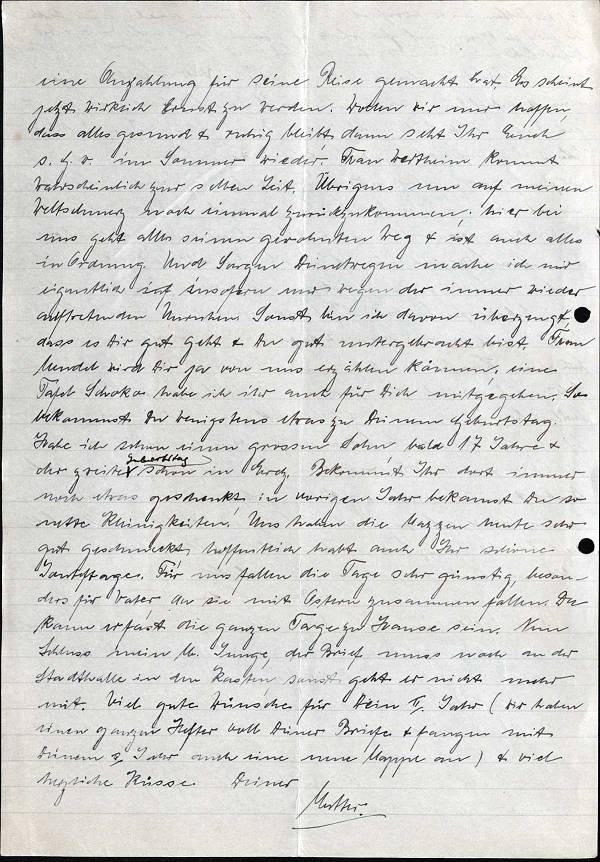 eine Anzahlung für seine Reise gemacht hat. Es scheint
jetzt wirklich Ernst zu werden. Wollen wir nur hoffen,
dass alles gesund & ruhig bleibt, dann seht Ihr Euch
s. G. w. im Sommer wieder. Frau Wertheim kommt
wahrscheinlich zur selben Zeit. Übrigens um auf meinen
Weltschmerz noch einmal zurückzukommen, hier bei
uns geht alles seinen gewohnten Weg & ist auch alles
in Ordnung. Und Sorgen Dinetwegen mache ich mir
eigentlich insofern nur wegen der immer wieder
auftretenden Unruhen. Sonst bin ich davon überzeugt
dass es Dir gut geht & Du gut untergebracht bist. Frau
Mendel wird Dir ja von uns erzählen können, eine
Tafel Schoko habe ich ihr auch für Dich mitgegeben. So
bekommst Du wenigstens etwas zu Deinem Geburtstag.
Habe ich schon einen grossen Sohn, bald 17 Jahre &
der zweite Geburtstag schon in Erez. Bekommt Ihr dort immer
noch etwas geschenkt, im vorigen Jahr bekamst Du so
nette Kleinigkeiten. Uns haben die Mazzen heute sehr
gut geschmeckt, hoffentlich habt auch Ihr schöne
Jonteftage. Für uns fallen die Tage sehr günstig, beson-
ders für Vater, da sie mit Ostern zusammen fallen. Da
kann er fast die ganzen Tage zu Hause sein. Nun
Schluss mein lb. Junge, der Brief muss noch an der
Stadthalle in den Kasten sonst geht er nicht mehr
mit. Viel gute Wünsche für Dein II. Jahr (wir haben
einen ganzen Hefter voll Deiner Briefe & fangen mit
Deinem 2. Jahr auch eine neue Mappe an) & viel
herzliche Küsse Deiner
Mutter.